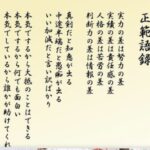 正範語録
実力の差は努力の差
実績の差は責任感の差
人格の差は苦労の差
判断力の差は情報の差
真剣だと知恵が出る
中途半端だと愚痴が出る
いい加減だと言い訳ばかり
本気でするから大抵のことはできる
本気でするから何でも面白い
本気でしているから誰かが助けてくれ